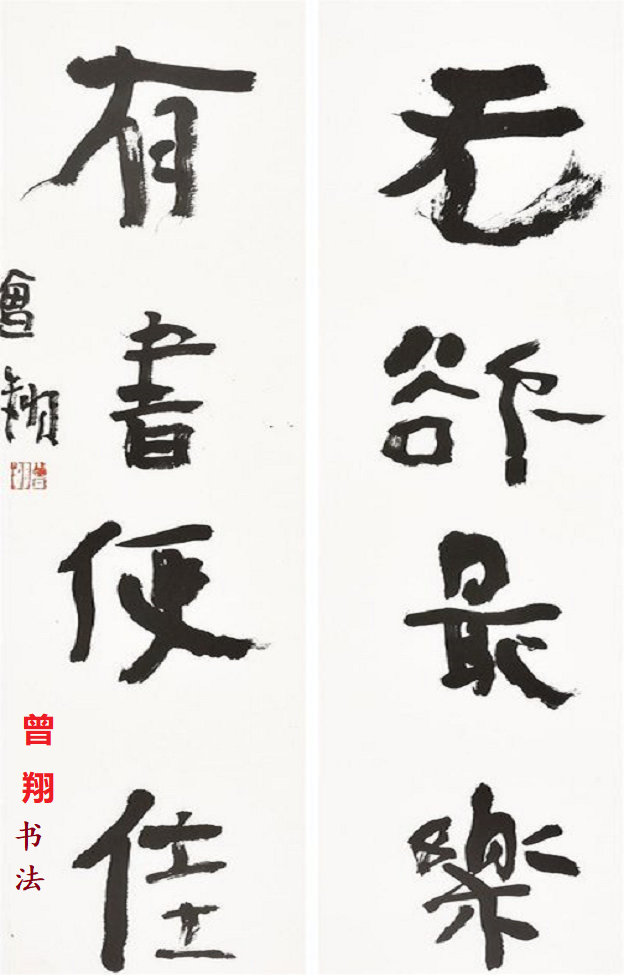 无欲最樂
有書便佳
曾翔
曾翔
曾翔
书法